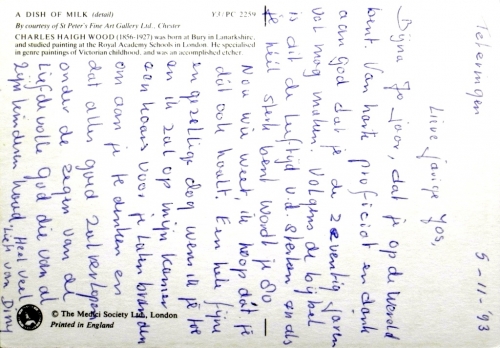 A DISH OF MILK (detail) YJ/PC 2259
By courtesy of St Peter's Fine Art Gallery Ltd., Chester
CHARLES HAIGH WOOD (1856-1927) was born at Bury in Lanarkshire,
and studied painting at the Royal Academy Schools in London. He specialised
in genre paintings of Victorian childhood, and was an accomplished etcher.
5-11-'93
Lieve jarige Jos,
Bijna 70 jaar, dat je op de wereld
bent. Van harte proficiat en dank
aan God dat je de zeventig jaren
vol mag maken. Volgens de bijbel
is dit de leeftijd v.d. sterken en als
je héél sterk bent wordt je 80
Nou wie weet, ik hoop dat je
dat ook haalt. Een hele fijne
en gezellige dag wens ik je toe
en ik zal op mijn kamer
een kaars voor je laten branden
om aan je te denken en
dat alles goed zal verlopen
onder de zegen van de
liefdevolle God die van al
zijn kinderen houd. Heel veel
liefs van Diny
© The Medici Society Ltd., London
Printed in England